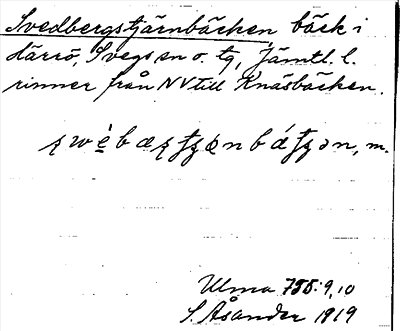 Svedbergstjärnbäcken bäck i
Härrö, Svegs sn o. tg, Jämtl. l.
rinner från NV till Knäsbäcken.
m.
Ulma 755:9,10
S. Åsander 1919